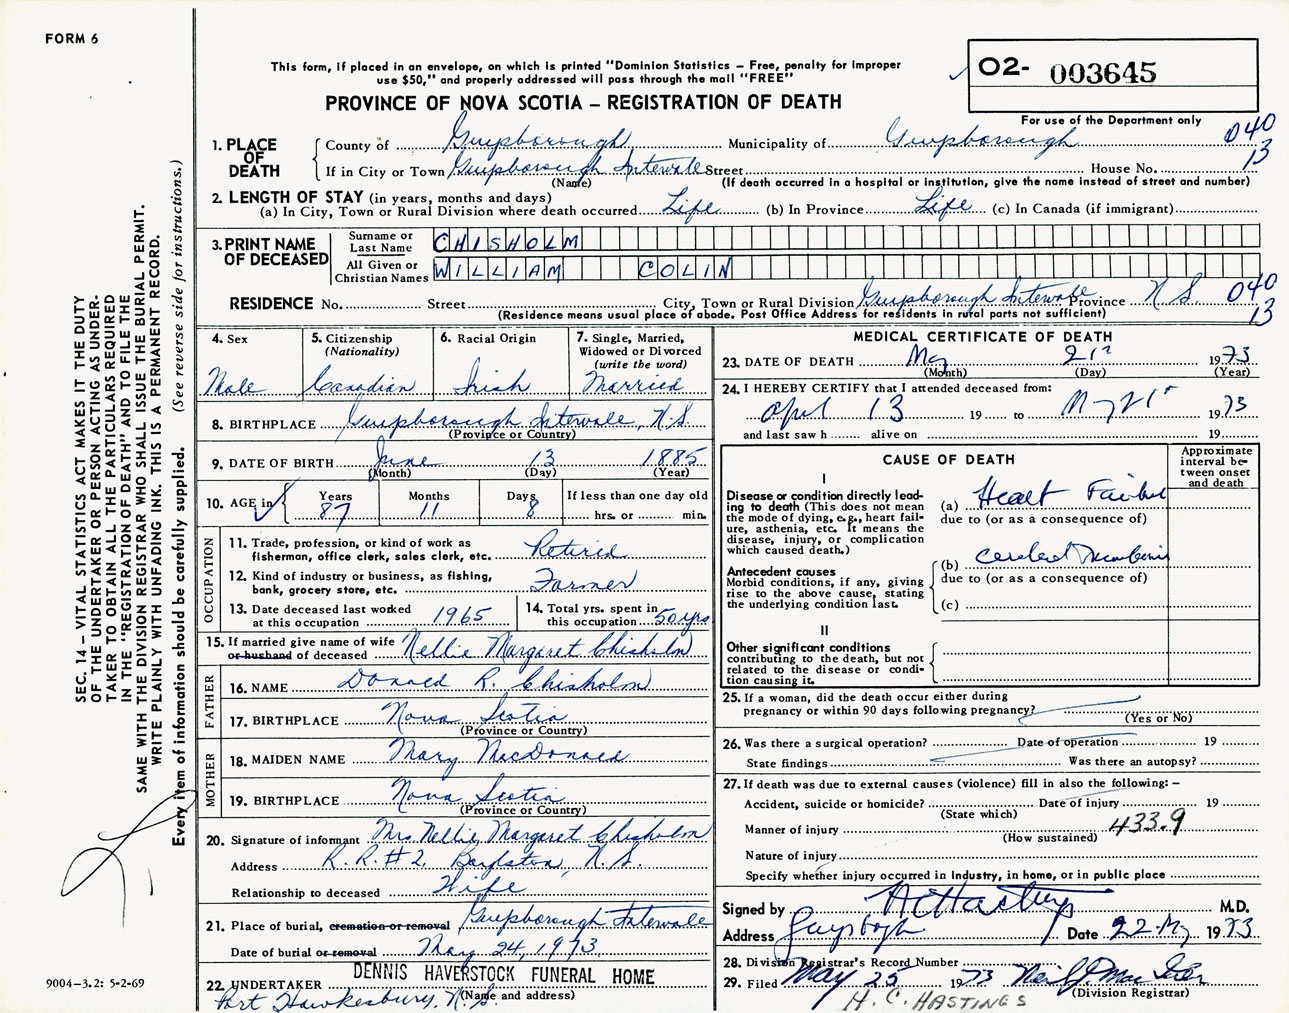 FORM 6
This form, if placed in an envelope, on which is printed "Dominion Statistics – Free, penalty for improper
use $50," and properly addressed will pass through the mail "FREE"
PROVINCE OF NOVA SCOTIA – REGISTRATION OF DEATH
O2- 003645
For use of the Department only
1. PLACE OF DEATH
County of Guysborough Municipality of Guysborough 040
If in City or Town Guysborough Intervale Street House No. 13
(Name) (If death occurred in a hospital or institution, give the name instead of street and number)
2. LENGTH OF STAY (in years, months and days)
(a) In City, Town or Rural Division where death occurred Life (b) In Province Life (c) In Canada (if immigrant)
3. PRINT NAME OF DECEASED
Surname or Last Name CHISHOLM
All Given or Christian Names WILLIAM COLIN
RESIDENCE No. Street City, Town or Rural Division Guysborough Intervale Province N.S. 040
(Residence means usual place of abode. Post Office Address for residents in rural parts not sufficient) 13
4. Sex
Male
5. Citizenship
(Nationality)
Canadian
6. Racial Origin
Irish
7. Single, Married,
Widowed or Divorced
(write the word)
Married
8. BIRTHPLACE Guysborough Intervale, N.S.
(Province or Country)
9. DATE OF BIRTH June 13 1885
(Month) (Day) (Year)
10. AGE in Years Months Days If less than one day old
87 11 8 hrs. or min.
OCCUPATION
11. Trade, profession, or kind of work as
fisherman, office clerk, sales clerk, etc. Retired
12. Kind of industry or business, as fishing,
bank, grocery store, etc. Farmer
13. Date deceased last worked
at this occupation 1965
14. Total yrs. spent in
this occupation 50 yrs
15. If married give name of wife
or husband of deceased Nellie Margaret Chisholm
FATHER
16. NAME Donald R. Chisholm
17. BIRTHPLACE Nova Scotia
(Province or Country)
MOTHER
18. MAIDEN NAME Mary MacDonald
19. BIRTHPLACE Nova Scotia
(Province or Country)
20. Signature of informant Mrs Nellie Margaret Chisholm
Address R.R.#2, Boylston, N.S.
Relationship to deceased Wife
21. Place of burial, cremation or removal Guysborough Intervale
Date of burial or removal May 24, 1973
DENNIS HAVERSTOCK FUNERAL HOME
22. UNDERTAKER
Port Hawkesbury, N.S. (Name and address)
MEDICAL CERTIFICATE OF DEATH
23. DATE OF DEATH May 21 1973
(Month) (Day) (Year)
24. I HEREBY CERTIFY that I attended deceased from:
April 13 19 to May 21 1973
and last saw h alive on 19
CAUSE OF DEATH
Approximate
interval be-
tween onset
and death
I
Disease or condition directly lead-
ing to death (This does not mean
the mode of dying, e.g., heart fail-
ure, asthenia, etc. It means the
disease, injury, or complication
which caused death.)
(a) Heart Failure
due to (or as a consequence of)
Antecedent causes
Morbid conditions, if any, giving
rise to the above cause, stating
the underlying condition last.
(b) Cerebral Thrombosis
due to (or as a consequence of)
(c)
II
Other significant conditions
contributing to the death, but not
related to the disease or condi-
tion causing it.
25. If a woman, did the death occur either during
pregnancy or within 90 days following pregnancy?
(Yes or No)
26. Was there a surgical operation? Date of operation 19
State findings Was there an autopsy?
27. If death was due to external causes (violence) fill in also the following: –
Accident, suicide or homicide? Date of injury 19
(State which)
Manner of injury 433.9
(How sustained)
Nature of injury
Specify whether injury occurred in industry, in home, or in public place
Signed by HCHastings M.D.
Address Guysboro Date 22 May 1973
28. Division Registrar's Record Number
29. Filed May 25 1973
(Division Registrar)
H.C. HASTINGS
SEC. 14 – VITAL STATISTICS ACT MAKES IT THE DUTY
OF THE UNDERTAKER OR PERSON ACTING AS UNDER-
TAKER TO OBTAIN ALL THE PARTICULARS REQUIRED
IN THE "REGISTRATION OF DEATH" AND TO FILE THE
SAME WITH THE DIVISION REGISTRAR WHO SHALL ISSUE THE BURIAL PERMIT.
WRITE PLAINLY WITH UNFADING INK. THIS IS A PERMANENT RECORD.
Every item of information should be carefully supplied. (See reverse side for instructions.)
9004–3.2: 5-2-69